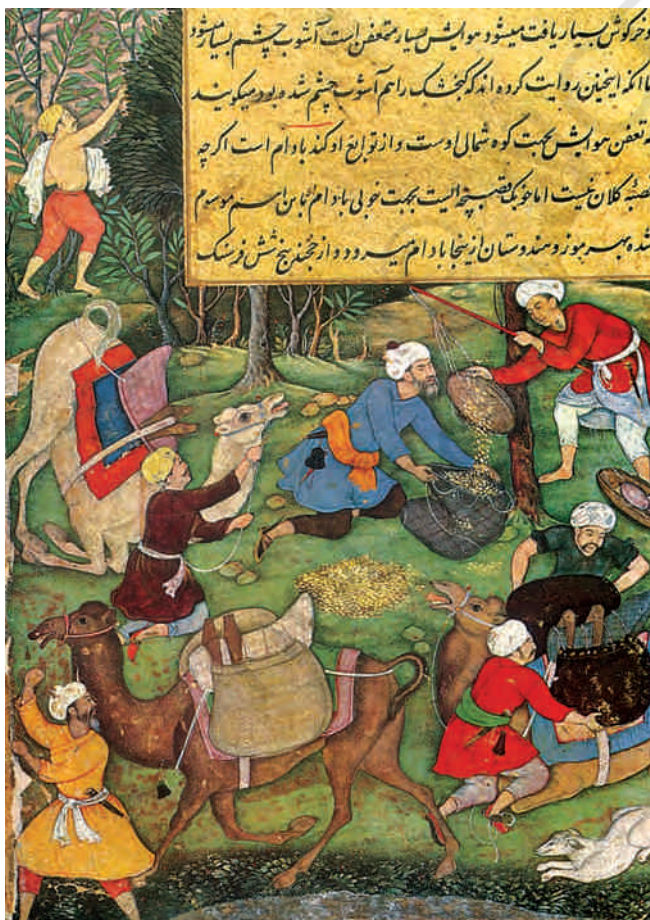 و خرکوش بسیار یافت میشود هوایش بسیار متعفن است آشوب چشم بسیار میشود
تا آنکه اینچنین روایت کرده اند که کنجشک را هم آشوب چشم شد و بود میکویند
که تعفن هوایش بجهت کوه شمالی اوست و از توابع او کند بادام است اکرچه
قصبه کلان نیست اما خوبک قصبچه ایست بجهت خوبی بادام باین اسم موسوم
شده بهرموز و هندوستان ازینجا بادام میرود و از خجند پنج شش فرسنک